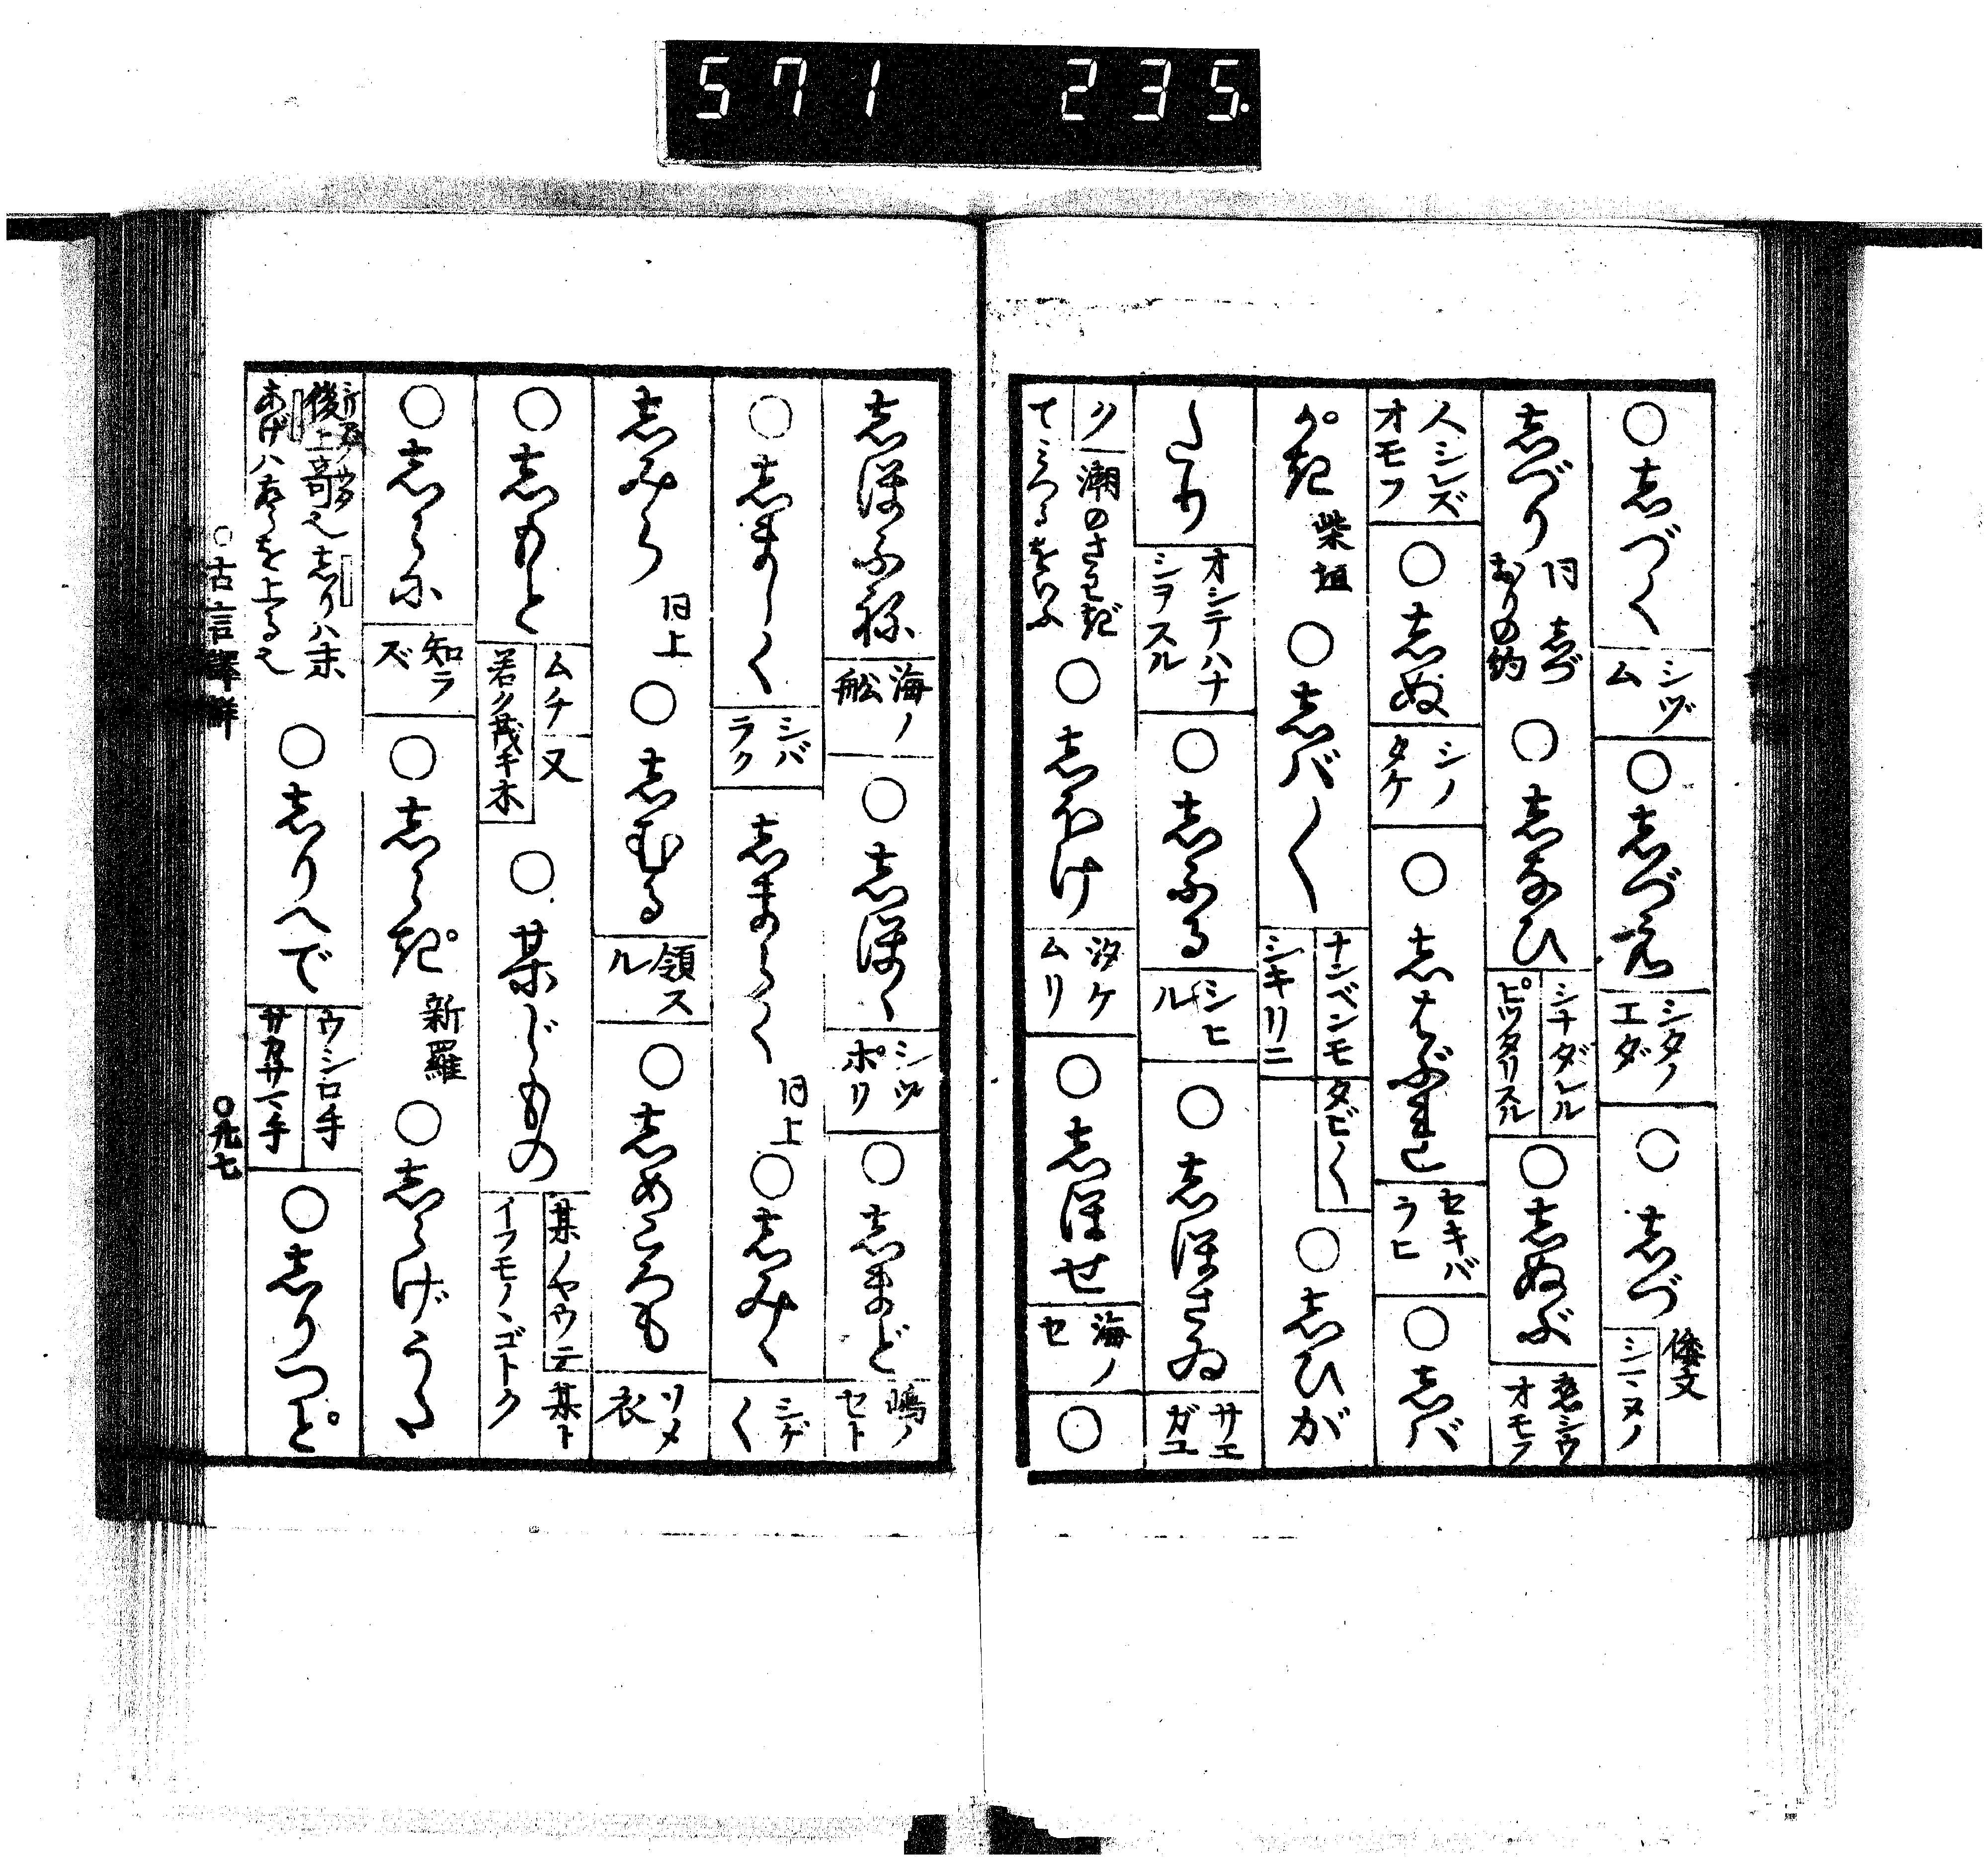 571 235.
○志づく シヅム ○志づえ シタノエダ ○志づ 倭文 シヅヌノ
志づり 同 志づおりの約 ○志なひ シナダレル ピツタリスル ○志ぬぶ 恋シウオモフ
人シレズオモフ ○志ぬ シノタケ ○志はぶれ セキバラヒ ○志バ
がき 柴垣 ○志バ〱 ナンベンモ タビ〱 シキリニ ○志ひが
たり オシテハナシヲスル ○志ふる シヒル ○志ほさゐ サエガエ
ク 潮のさわぎてミつるをいふ ○志ほけ 汐ケムリ ○志ほせ 海ノセ ○
志ほふね 海ノ舩 ○志ほゝ シヅポリ ○志まど 嶋ノセト
○志まし〱 シバラク 志まらく 同上 ○志みゝ シゲ〱
志みら 同上 ○志むる 領スル ○志めころも リメ衣
○志もと ムチ 又 若ク茂キ木 ○某じもの 某ノヤウテ 某トイフモノヽゴトク
○志らに 知ラズ ○志らき゚ 新羅 ○志らげうた
後上哥也 志りハ末 あげハあらを上る也 ○志りへで ウシロ手 サカサマ手 ○志りつど
○古言譯解 ○九七